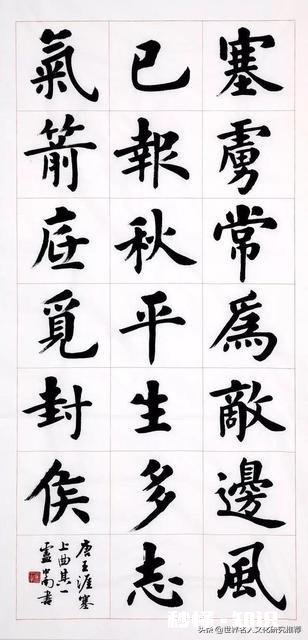 塞虜常爲敵邊風
已報秋平生多志
氣箭底覓封侯
唐王涯塞
上曲其一
盧中南書
頭条 @世界名人文化研究推荐